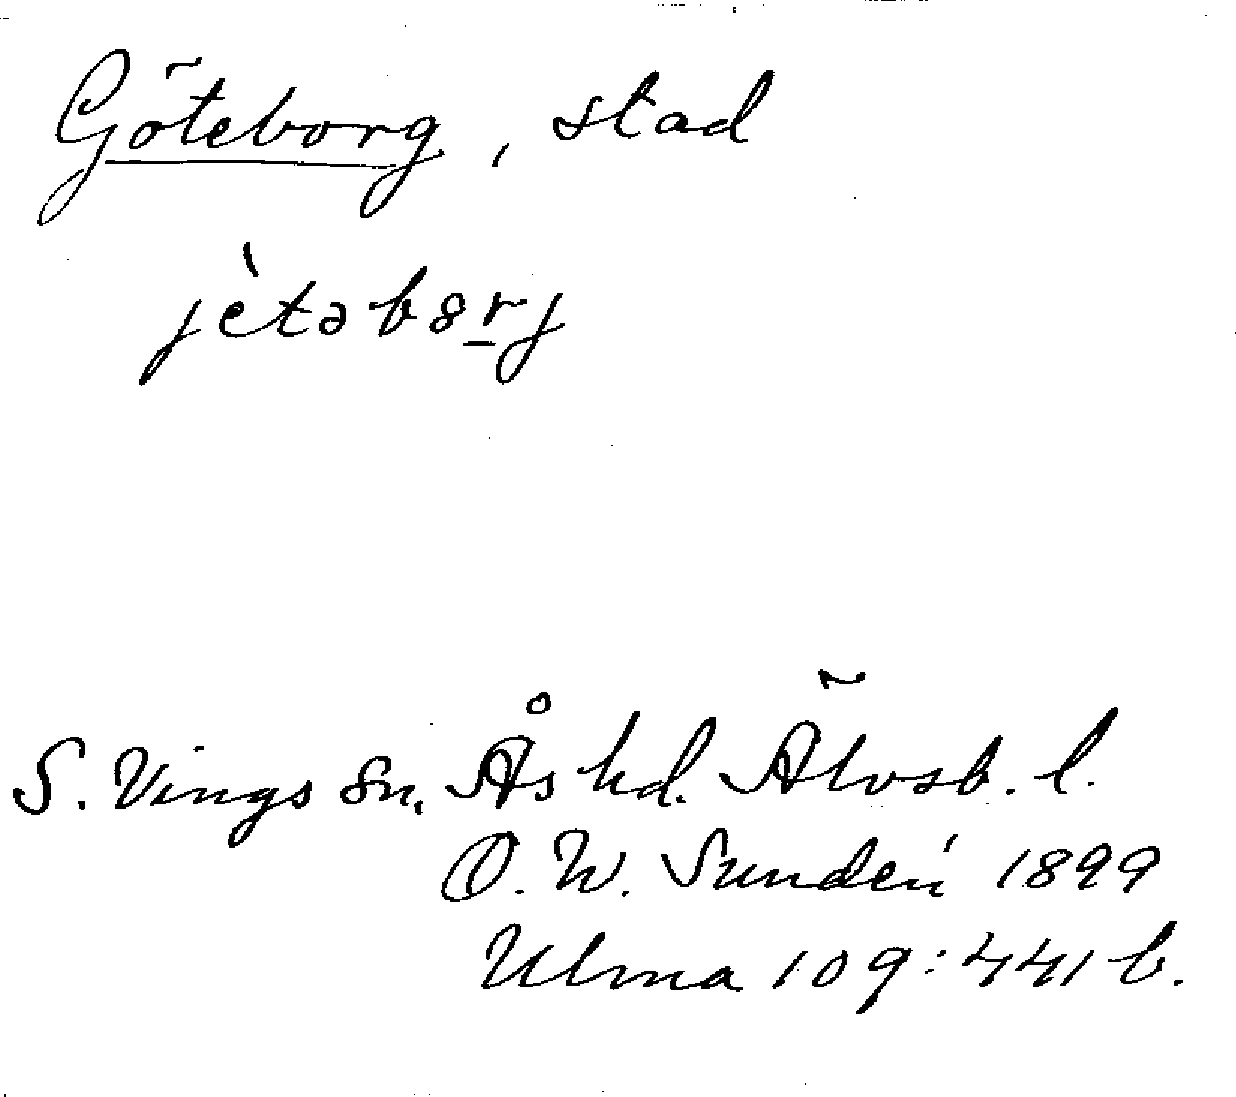 Göteborg, stad
jètəb8rj
S. Vings sn, Ås hd. Älvsb. l.
O. W. Sundén 1899
Ulma 109:441 b.